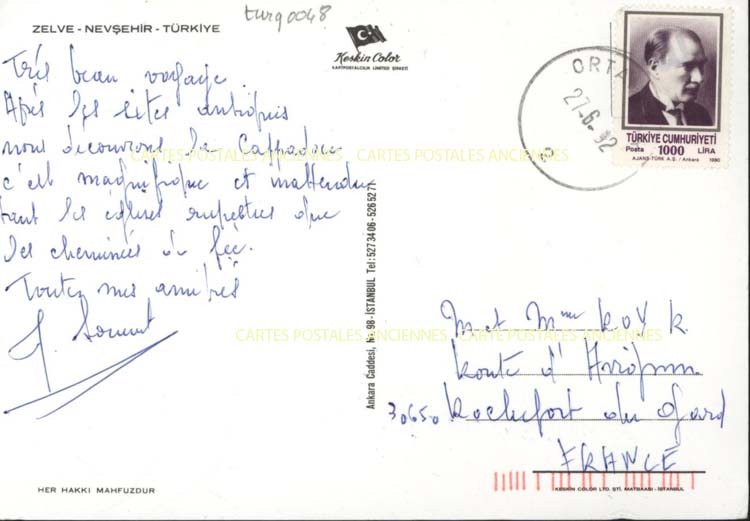 turq0048
ZELVE - NEVŞEHİR - TÜRKİYE
Très beau voyage
Après les sites antiques
nous découvrons la Cappadoce
c'est magnifique et inattendu
tant les églises rupestres que
les cheminées de fée.
Toutes mes amitiés
Keskin Color
KARTPOSTALCILIK LIMITED ŞİRKETİ
ORTA
27-6-92
TÜRKİYE CUMHURİYETİ
Posta 1000 LİRA
AJANS-TÜRK A.Ş. / Ankara 1990
CARTES POSTALES ANCIENNES CARTES POSTALES ANCIENNES
CARTES POSTALES ANCIENNES CARTES POSTALES ANCIENNES
Ankara Caddesi, No. 98-İSTANBUL Tel: 5273406-5265271
M et Mme
Route d'
30650 Rochefort du Gard
FRANCE
HER HAKKI MAHFUZDUR
KESKIN COLOR LTD. ŞTİ. MATBAASI - İSTANBUL